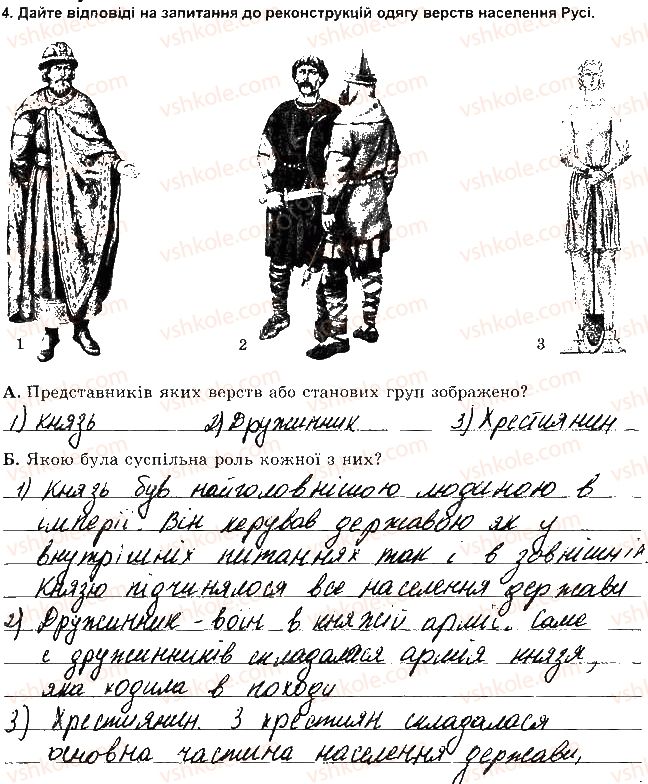 4. Дайте відповіді на запитання до реконструкцій одягу верств населення Русі.
vshkole.com
1 2 3
А. Представників яких верств або станових груп зображено?
1) Князь 2) Дружинник 3) Хрестиянин
Б. Якою була суспільна роль кожної з них?
1) Князь був найголовнішою людиною в
імперії. Він керував державою як у
внутрішніх питаннях так і в зовнішній.
Князю підчинялося все населення держави
2) Дружинник - воїн в княжій армії. Саме
є дружинників складалася армія князя,
яка ходила в походи
3) Хрестиянин. З хрестиян складалася
основна частина населення держави,